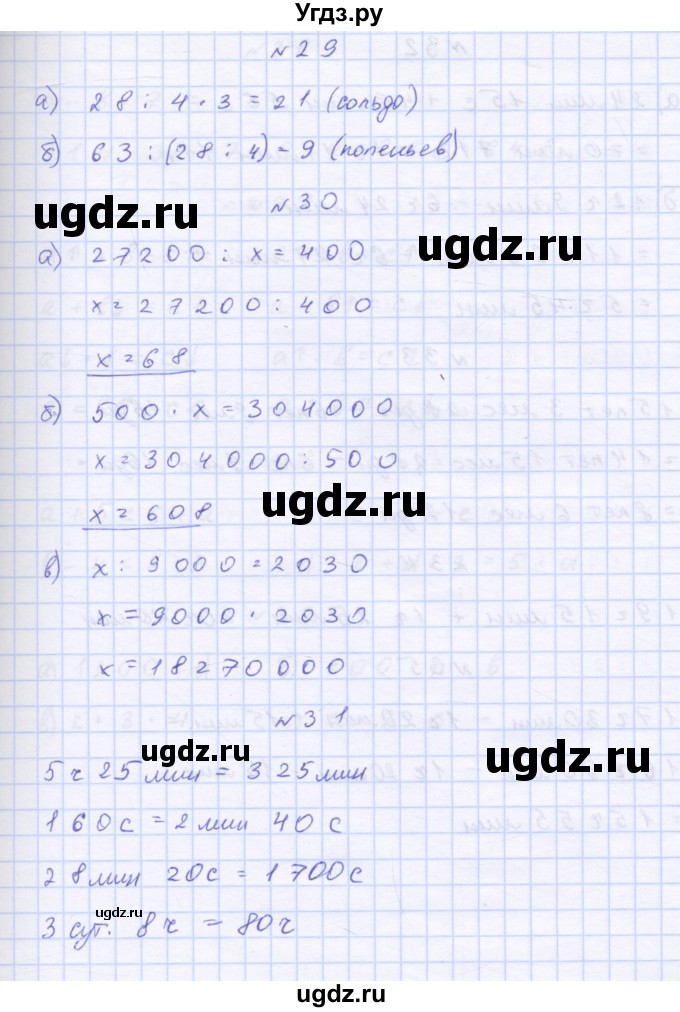 Угдз.ру
№29
а) 28 : 4 · 3 = 21 (сольдо)
б) 63 : (28 : 4) = 9 (поленьев)
№30
ugdz.ru
ugdz.ru
а) 27200 : x = 400
x = 27200 : 400
x = 68
б) 500 · x = 304000
x = 304000 : 500
ugdz.ru
x = 608
в) x : 9000 = 2030
x = 9000 · 2030
x = 18270000
№31
ugdz.ru
ugdz.ru
5 ч 25 мин = 325 мин
160 с = 2 мин 40 с
28 мин 20 с = 1700 с
ugdz.ru
3 сут. 8 ч = 80 ч
ugdz.ru